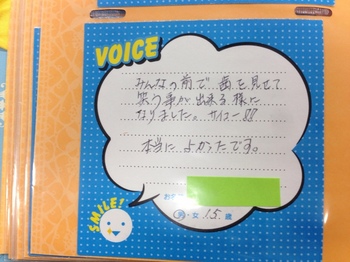 VOICE
みんなの前で歯を見せて
笑う事が出来る様に
なりました。サイコー!!
本当によかったです。
お名
男・女 15 歳
SMILE!